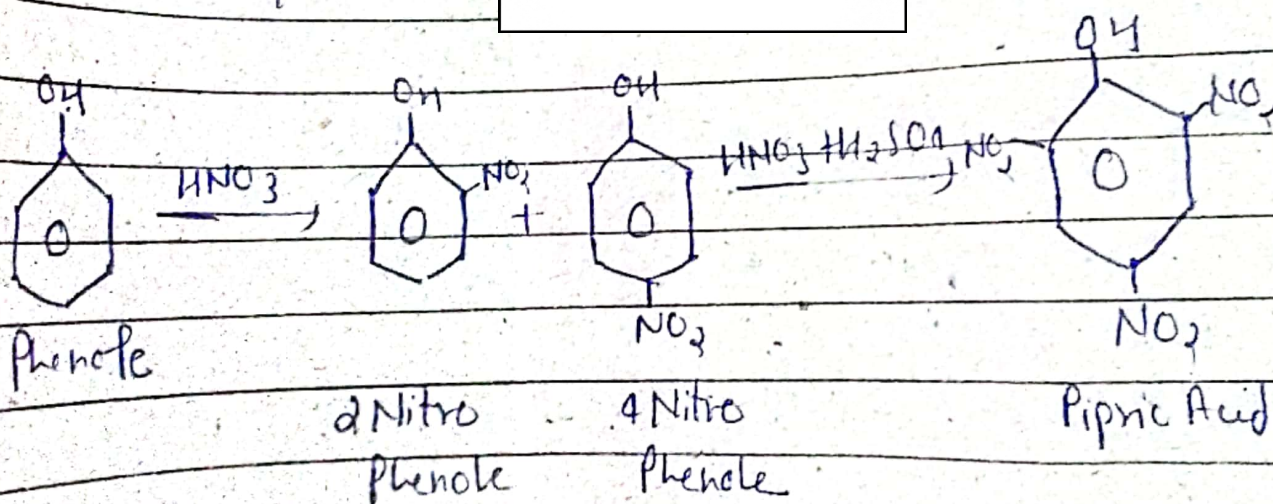 OH
OH
OH
OH
NO2
HNO3
NO2
+
HNO3 + H2SO4
NO2
NO2
NO2
Phenole
2 Nitro
Phenole
4 Nitro
Phenole
Pipric Acid